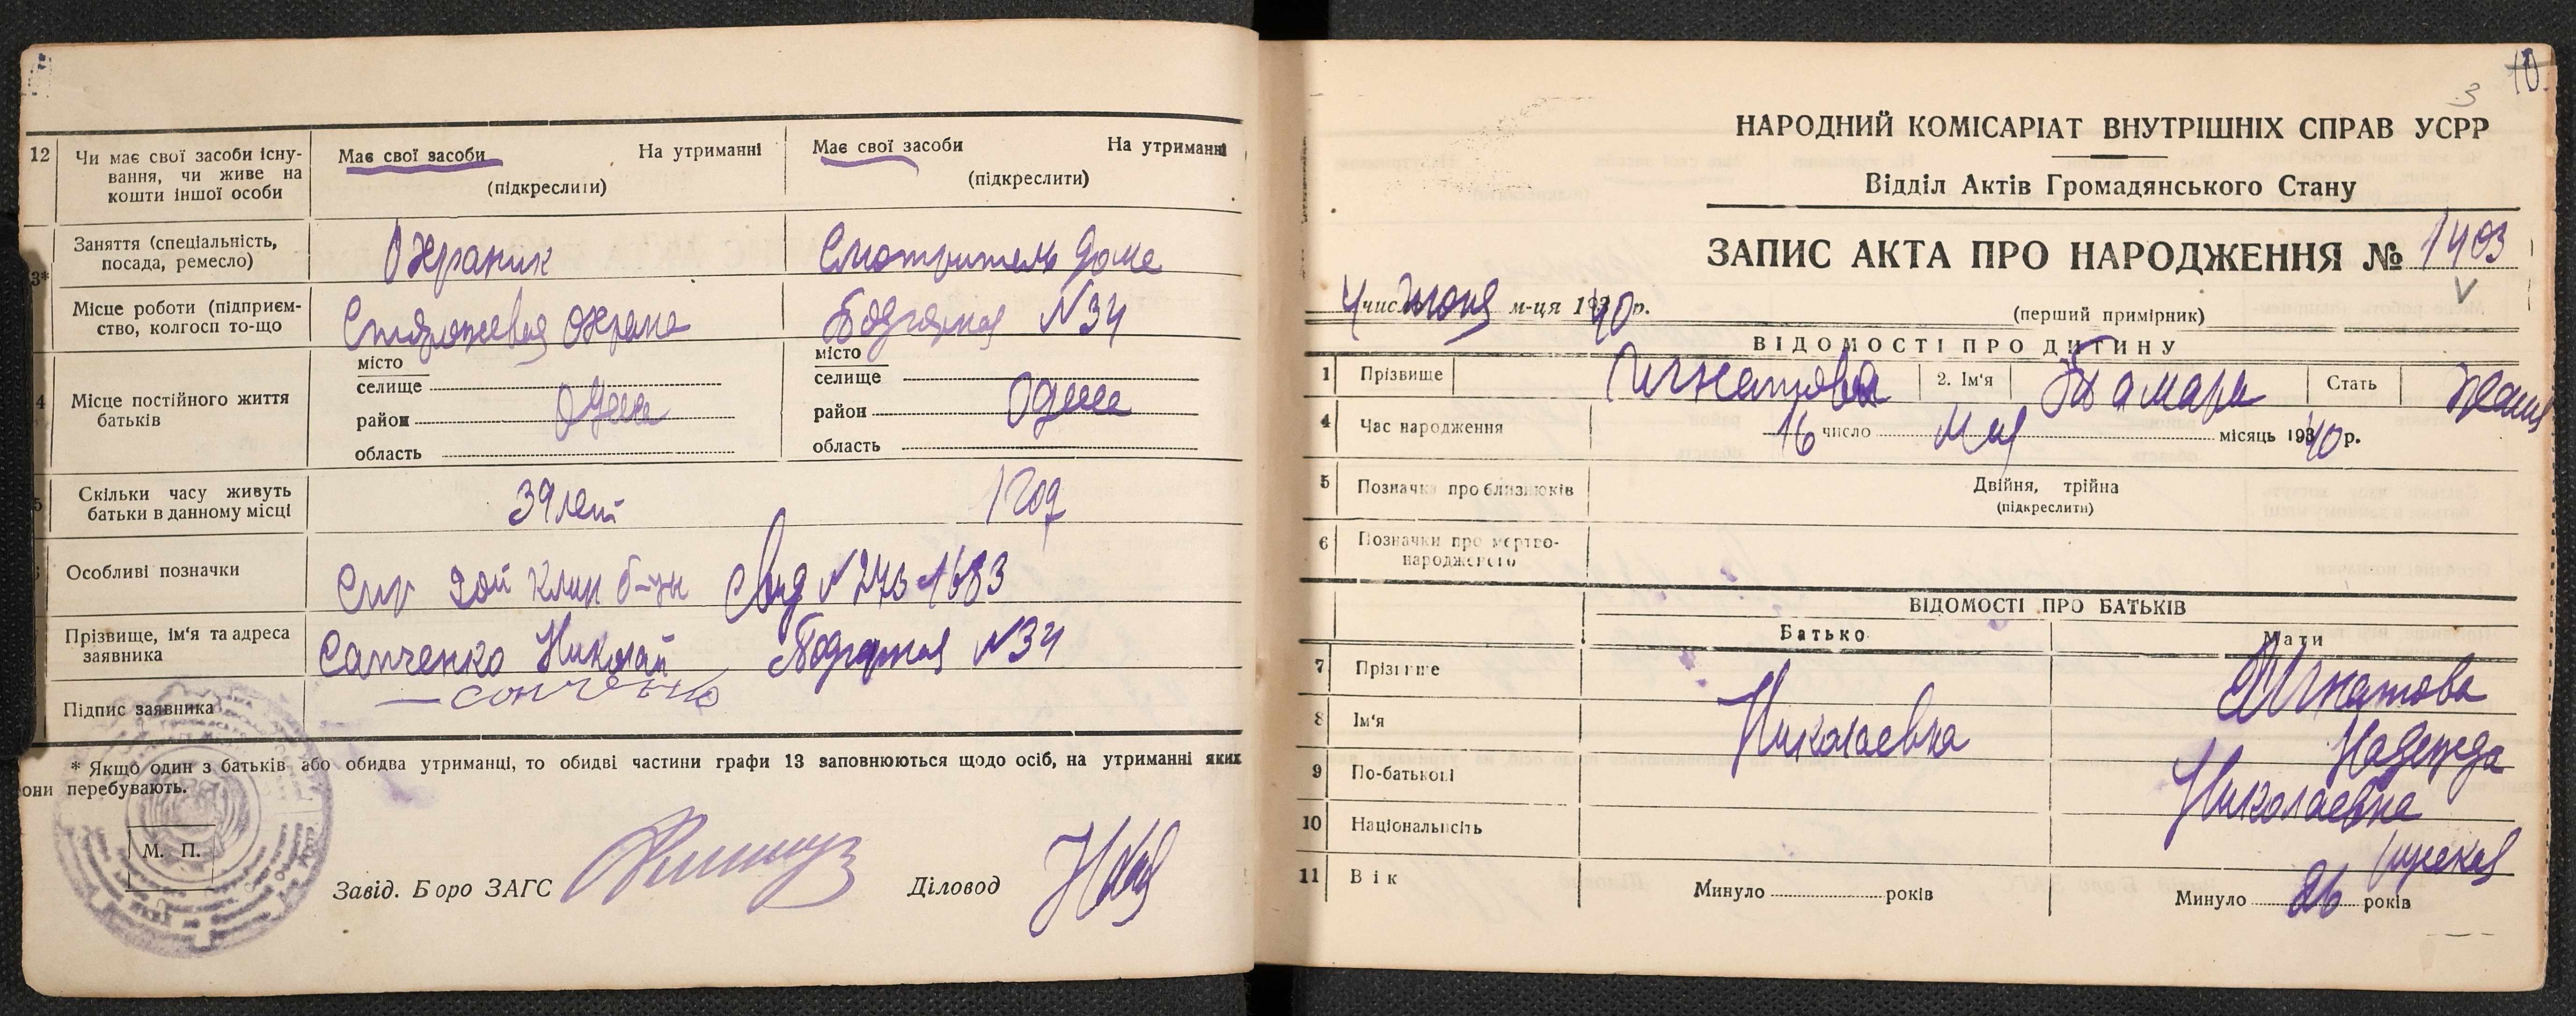 12 Чи має свої засоби існу-
вання, чи живе на
кошти іншої особи
Має свої засоби На утриманні
(підкреслити)
Має свої засоби На утриманні
(підкреслити)
3* Заняття (спеціальність,
посада, ремесло)
Охраник
Смотритель дома
Місце роботи (підприєм-
ство, колгосп то-що
Сторожевая охрана
N 34
4 Місце постійного життя
батьків
місто
селище
район Одесса
область
місто
селище
район Одесса
область
5 Скільки часу живуть
батьки в данному місці
39 лет
1 год
Особливі позначки
Спр 2ой клин б-цы Свид N
Прізвище, ім'я та адреса
заявника
Сапченко Николай N 34
Підпис заявника
* Якщо один з батьків або обидва утриманці, то обидві частини графи 13 заповнюються щодо осіб, на утриманні яких
они перебувають.
М. П.
Завід. Бюро ЗАГС
Діловод
10.
3
НАРОДНИЙ КОМІСАРІАТ ВНУТРІШНІХ СПРАВ УСРР
Відділ Актів Громадянського Стану
ЗАПИС АКТА ПРО НАРОДЖЕННЯ № 1493
4 числ июня м-ця 1940 р.
(перший примірник)
ВІДОМОСТІ ПРО ДИТИНУ
1 Прізвище Игнатова 2. Ім'я Тамара Стать
4 Час народження 16 число Мая місяць 1940 р.
5 Позначка про близнюків Двійня, трійна
(підкреслити)
6 Позначки про мертво-
народженого
ВІДОМОСТІ ПРО БАТЬКІВ
Батько Мати
7 Прізвище Игнатова
8 Ім'я Николаевна Надежда
9 По-батькові Николаевна
10 Національність
11 Вік Минуло років Минуло 26 років